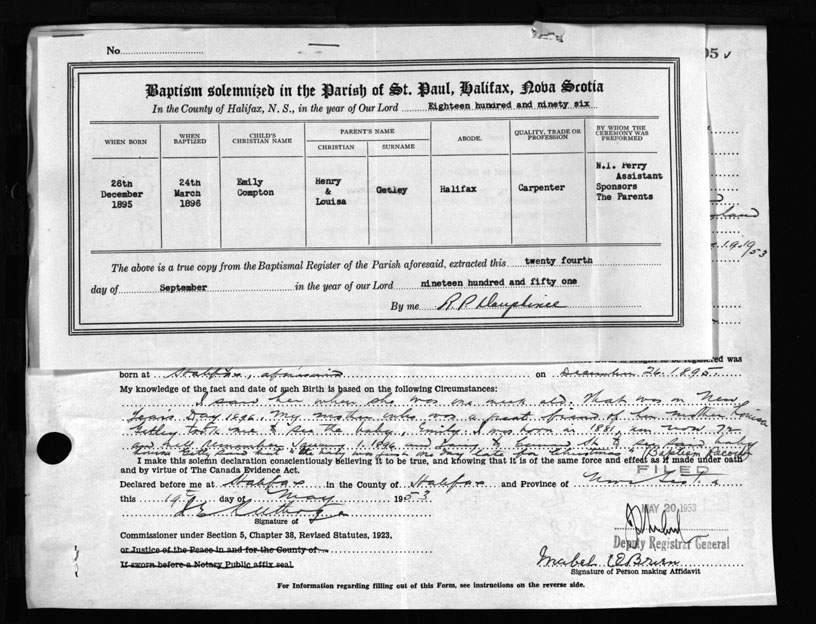 No.
95
Baptism solemnized in the Parish of St. Paul, Halifax, Nova Scotia
In the County of Halifax, N. S., in the year of Our Lord Eighteen hundred and ninety six
WHEN BORN
WHEN BAPTIZED
CHILD'S CHRISTIAN NAME
PARENT'S NAME
CHRISTIAN
SURNAME
ABODE.
QUALITY, TRADE OR PROFESSION
BY WHOM THE CEREMONY WAS PREFORMED
26th December 1895
24th March 1896
Emily Compton
Henry & Louisa
Getley
Halifax
Carpenter
N.I. Perry Assistant
Sponsors
The Parents
The above is a true copy from the Baptismal Register of the Parish aforesaid, extracted this twenty fourth
day of September in the year of our Lord nineteen hundred and fifty one
By me R P Dauphinee
1953
registered was
born at Halifax, aforesaid on December 26 1895.
My knowledge of the fact and date of such Birth is based on the following Circumstances:
I saw her when she was one week old. That was on New
Years Day 1896. My mother who was a great friend of her mother Louisa
Getley took me to see the baby, Emily. I was born in 1881, am now 72
and well remember January 1. 1896 and going to St. to see baby
Louisa Getley said that "the baby was just one day late for Christmas" Baptism Record
I make this solemn declaration conscientiously believing it to be true, and knowing that it is of the same force and effect as if made under oath
and by virtue of The Canada Evidence Act.
FILED
Declared before me at Halifax in the County of Halifax and Province of Nova Scotia
this 19th day of May 1953
MAY 20 1953
Signature of
Deputy Registrar General
Commissioner under Section 5, Chapter 38, Revised Statutes, 1923.
or Justice of the Peace in and for the County of
Mabel O'Brien
If sworn before a Notary Public affix seal
Signature of Person making Affidavit
For Information regarding filling out of this Form, see instructions on the reverse side.